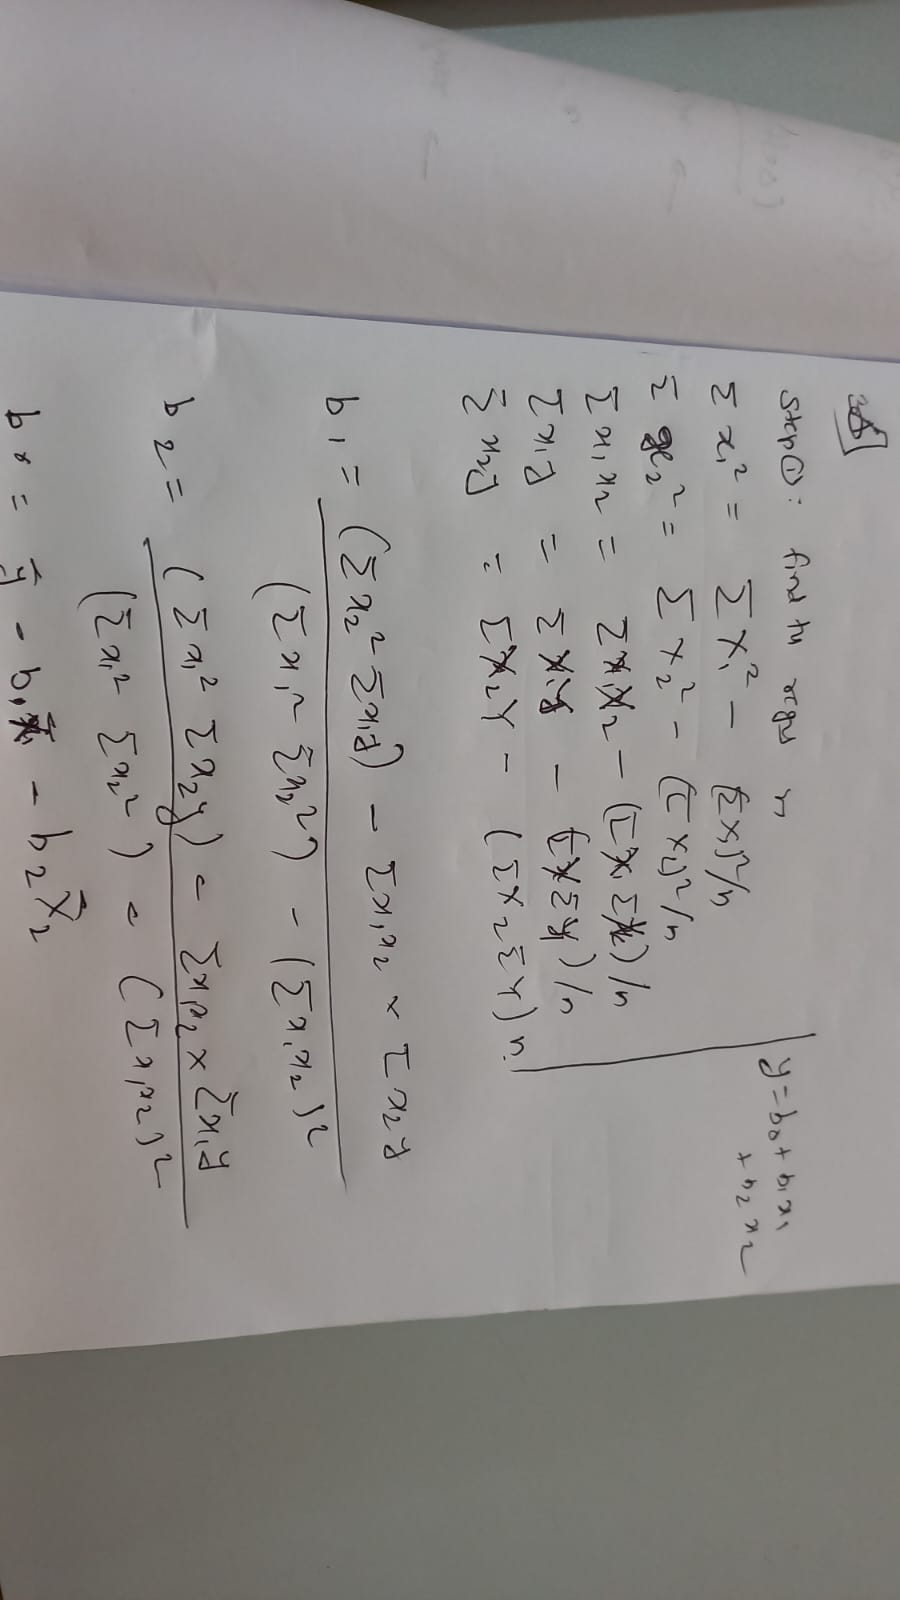 Step ①: find
y = b₀ + b₁x₁
+ b₂x₂
Σx₁² = ΣX₁² - (ΣX₁)²/n
Σx₂² = ΣX₂² - (ΣX₂)²/n
Σx₁x₂ = ΣX₁X₂ - (ΣX₁ΣX₂)/n
Σx₁y = ΣX₁y - (ΣX₁Σy)/n
Σx₂y = ΣX₂Y - (ΣX₂ΣY)n.
b₁ = (Σx₂² Σx₁y) - Σx₁x₂ × Σx₂y
(Σx₁² Σx₂²) - (Σx₁x₂)²
b₂ = (Σx₁² Σx₂y) - Σx₁x₂ × Σx₁y
(Σx₁² Σx₂²) - (Σx₁x₂)²
b₀ = ȳ - b₁x̄₁ - b₂X̄₂